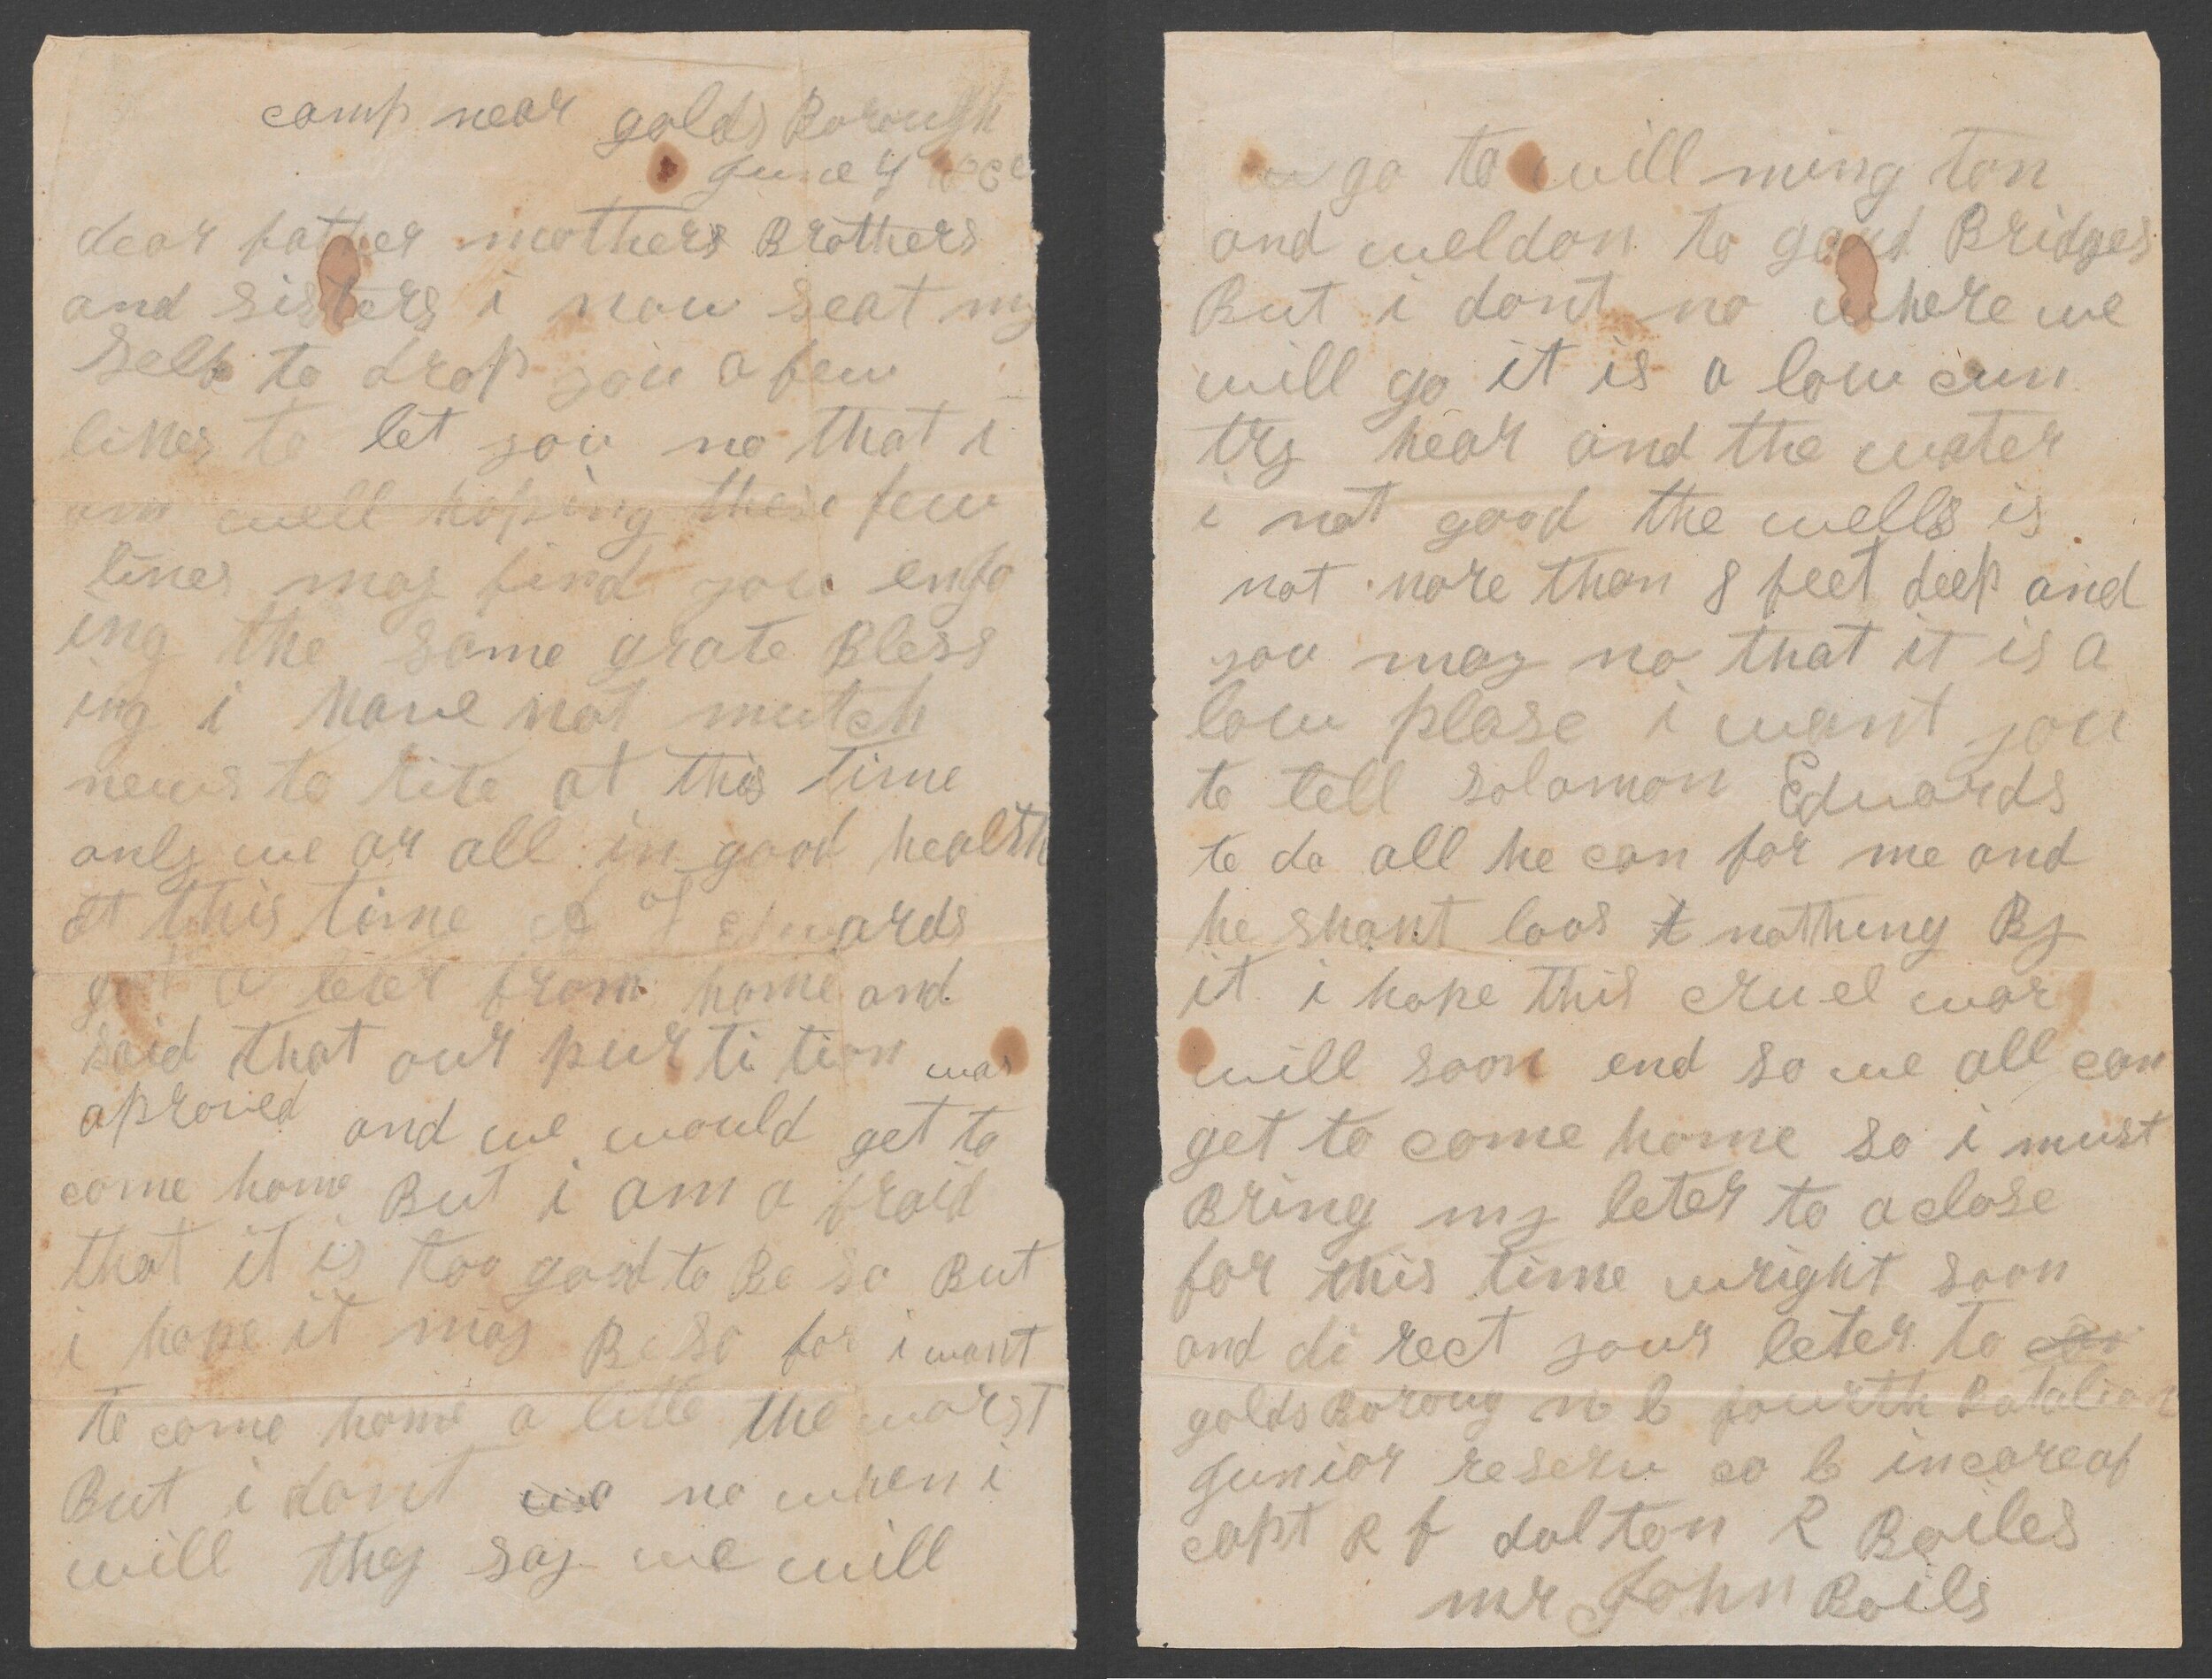 camp near golds Borough
June 4
dear father mothers Brothers
and sisters i now seat my
Self to drop you a few
lines to let you no that i
am well hoping these few
lines may find you enjo
ing the same grate Bless
ing i have not mutch
news to rite at this time
only we ar all in good health
at this time
got a leter from home and
said that our purti tion was
aproved and we would get to
come home But i am a fraid
that it is too good to Be so But
i hope it may Be so for i want
to come home a litle the worst
But i dont no when i
will they say we will
go to will ming ton
and weldon to gard Bridges
But i dont no where we
will go it is a low cun
try hear and the water
i not good the wells is
not more than 8 feet deep and
you may no that it is a
low plase i want you
to tell solomon Edwards
to do all he can for me and
he shant loos t nothing By
it i hope this cruel war
will soon end so we all can
get to come home so i must
Bring my leter to a close
for this time wright soon
and di rect your leter to
golds Boroug n C fourth Batalion
Junior reserv co C in care of
capt R f dalton R Boiles
mr John Boils